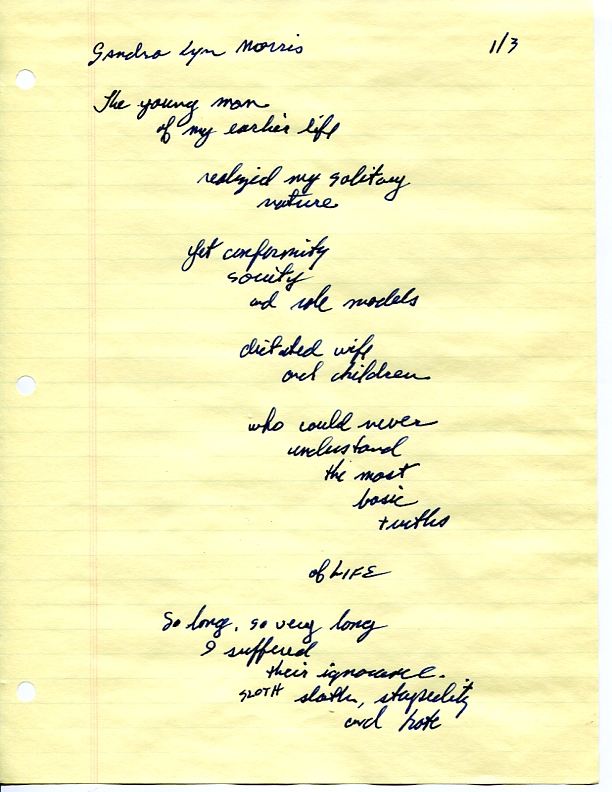 Sandra Lyn Morris 1/3
The young man
of my earlier life
realized my solitary
nature
yet conformity
society
and role models
dictated wife
and children
who could never
understand
the most
basic
truths
of LIFE
So long, so very long
I suffered
their ignorance.
SLOTH sloth, stupidity
and hate